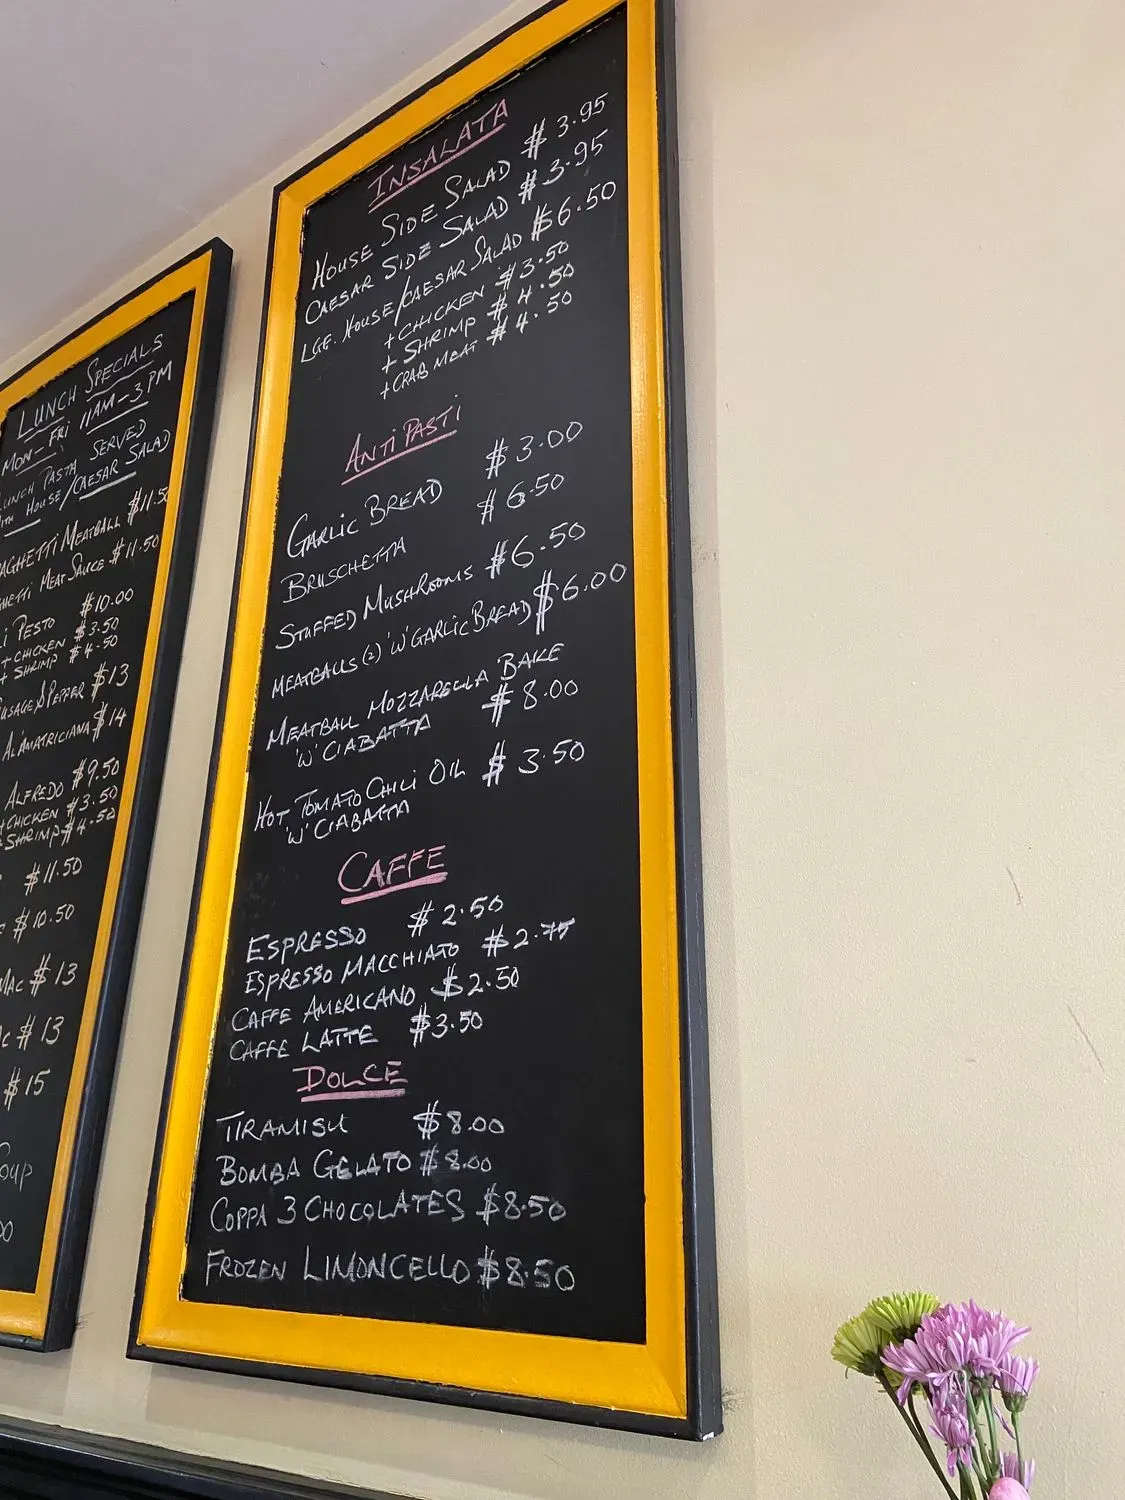 LUNCH SPECIALS
MON-FRI 11AM-3PM
LUNCH PASTA SERVED
WITH HOUSE/CAESAR SALAD
SPAGHETTI MEATBALL $11.50
MEAT SAUCE $11.50
PESTO $10.00
+ CHICKEN $3.50
+ SHRIMP $4.50
& PEPPER $13
AL'AMATRICIANA $14
ALFREDO $9.50
+CHICKEN $3.50
+SHRIMP $4.50
$11.50
$10.50
MAC $13
$13
$15
SOUP
INSALATA
HOUSE SIDE SALAD $3.95
CAESAR SIDE SALAD $3.95
LGE. HOUSE/CAESAR SALAD $6.50
+ CHICKEN $3.50
+ SHRIMP $4.50
+ CRAB MEAT $4.50
ANTIPASTI
GARLIC BREAD $3.00
BRUSCHETTA $6.50
STUFFED MUSHROOMS $6.50
MEATBALLS (2) 'W' GARLIC BREAD $6.00
MEATBALL MOZZARELLA BAKE
'W' CIABATTA $8.00
HOT TOMATO CHILI OIL $3.50
'W' CIABATTA
CAFFE
ESPRESSO $2.50
ESPRESSO MACCHIATO $2.75
CAFFE AMERICANO $2.50
CAFFE LATTE $3.50
DOLCE
TIRAMISU $8.00
BOMBA GELATO $8.00
COPPA 3 CHOCOLATES $8.50
FROZEN LIMONCELLO $8.50